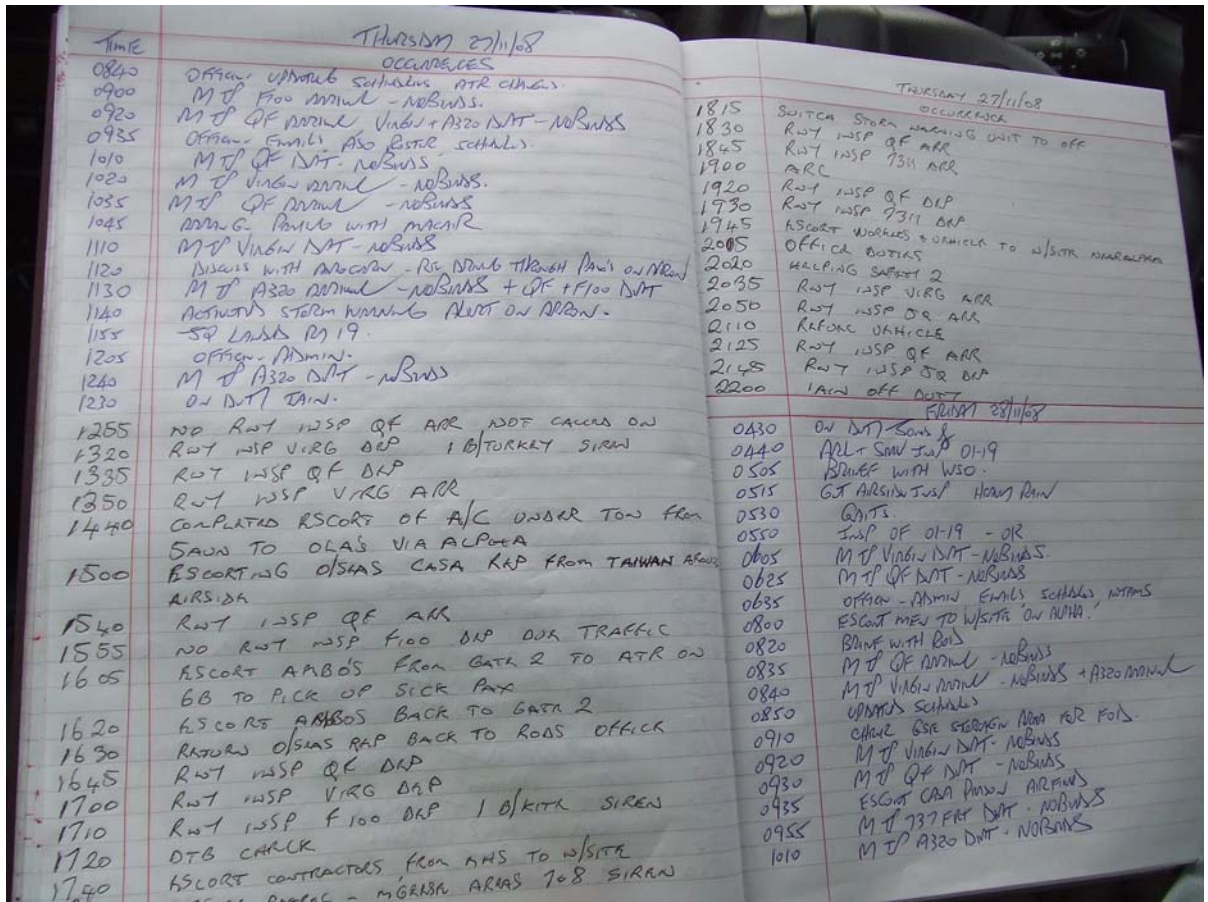 THURSDAY 27/11/08
TIME OCCURRENCES
0840 OFFICE - UPDATING SCHEDULES ATR CHANGES.
0900 M I/P F100 ARRIVAL - NO BIRDS.
0920 M I/P QF ARRIVAL VIRGIN + A320 DEPT - NO BIRDS
0935 OFFICE - EMAILS ASO ROSTER SCHEDULES.
1010 M I/P QF DEPT - NO BIRDS
1020 M I/P VIRGIN ARRIVAL - NO BIRDS.
1035 M I/P QF ARRIVAL - NO BIRDS
1045 PARKING WITH MACAIR
1110 M I/P VIRGIN DEPT - NO BIRDS
1120 DISCUSS WITH - RE DRIVING THROUGH PAX'S ON APRON
1130 M I/P A320 ARRIVAL - NO BIRDS + QF + F100 DEPT
1140 ACTIVATED STORM WARNING ALERT ON APRON.
1155 JQ LANDS 19.
1205 OFFICE - ADMIN.
1240 M I/P A320 DEPT - NO BIRDS
1230 ON DUTY IAIN.
1255 NO RWY INSP QF ARR NOT CALLED ON
1320 RWY INSP VIRG DEP 1 B/TURKEY SIREN
1335 RWY INSP QF DEP
1350 RWY INSP VIRG ARR
1440 COMPLETED ESCORT OF A/C UNDER TOW FROM
TO VIA ALPHA
1500 ESCORTING O/SEAS CASA REP FROM TAIWAN AROUND
AIRSIDE
1540 RWY INSP QF ARR
1555 NO RWY INSP F100 DEP DUE TRAFFIC
1605 ESCORT AMBO'S FROM GATE 2 TO ATR ON
6B TO PICK UP SICK PAX
1620 ESCORT AMBOS BACK TO GATE 2
1630 RETURN O/SEAS REP BACK TO RODS OFFICE
1645 RWY INSP QF DEP
1700 RWY INSP VIRG DEP
1710 RWY INSP F100 DEP 1 B/KITE SIREN
1720 DTB CHECK
1740 ESCORT CONTRACTORS FROM AHS TO W/SITE
AREAS 7+8 SIREN
THURSDAY 27/11/08
OCCURRENCE
1815 SWITCH STORM WARNING UNIT TO OFF
1830 RWY INSP QF ARR
1845 RWY INSP 73H ARR
1900 ARC
1920 RWY INSP QF DEP
1930 RWY INSP 73H DEP
1945 ESCORT WORKERS + VEHICLE TO W/SITE
2005 OFFICE DUTIES
2020 HELPING SAFETY 2
2035 RWY INSP VIRG ARR
2050 RWY INSP JQ ARR
2110 REFUEL VEHICLE
2125 RWY INSP QF ARR
2145 RWY INSP JQ DEP
2200 IAIN OFF DUTY
FRIDAY 28/11/08
0430 ON DUTY
0440 INSP 01-19
0505 BRIEF WITH WSO.
0515 AIRSIDE INSP HEAVY RAIN
0530
0550 INSP OF 01-19 - OK
0605 M I/P VIRGIN DEPT - NO BIRDS.
0625 M I/P QF DEPT - NO BIRDS
0635 OFFICE - ADMIN EMAILS SCHEDULES NOTAMS
0800 ESCORT MEN TO W/SITE ON ALPHA.
0820 BRIEF WITH ROD
0835 M I/P QF ARRIVAL - NO BIRDS
0840 M I/P VIRGIN ARRIVAL - NO BIRDS + A320 ARRIVAL
0850 UPDATED SCHEDULES
0910 CHECK GSE STORAGE AREA FOR FOD.
0920 M I/P VIRGIN DEPT - NO BIRDS
0930 M I/P QF DEPT - NO BIRDS
0935 ESCORT CASA PERSON AIRFIELD
0955 M I/P 737 FRT DEPT - NO BIRDS
1010 M I/P A320 DEPT - NO BIRDS